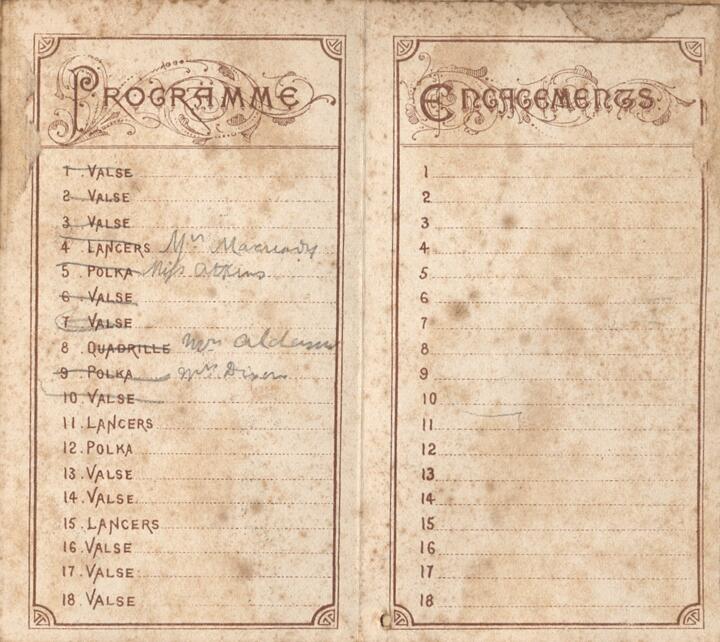 PROGRAMME
1 . VALSE
2 . VALSE
3 . VALSE
4 . LANCERS Mrs Macready
5 . POLKA Miss Atkins
6 . VALSE
7 . VALSE
8 . QUADRILLE Mrs
9 . POLKA Mrs Dixon
10 . VALSE
11 . LANCERS
12 . POLKA
13 . VALSE
14 . VALSE
15 LANCERS
16 . VALSE
17 . VALSE
18 VALSE
ENGAGEMENTS
1
2
3
4
5
6
7
8
9
10
11
12
13
14
15
16
17
18